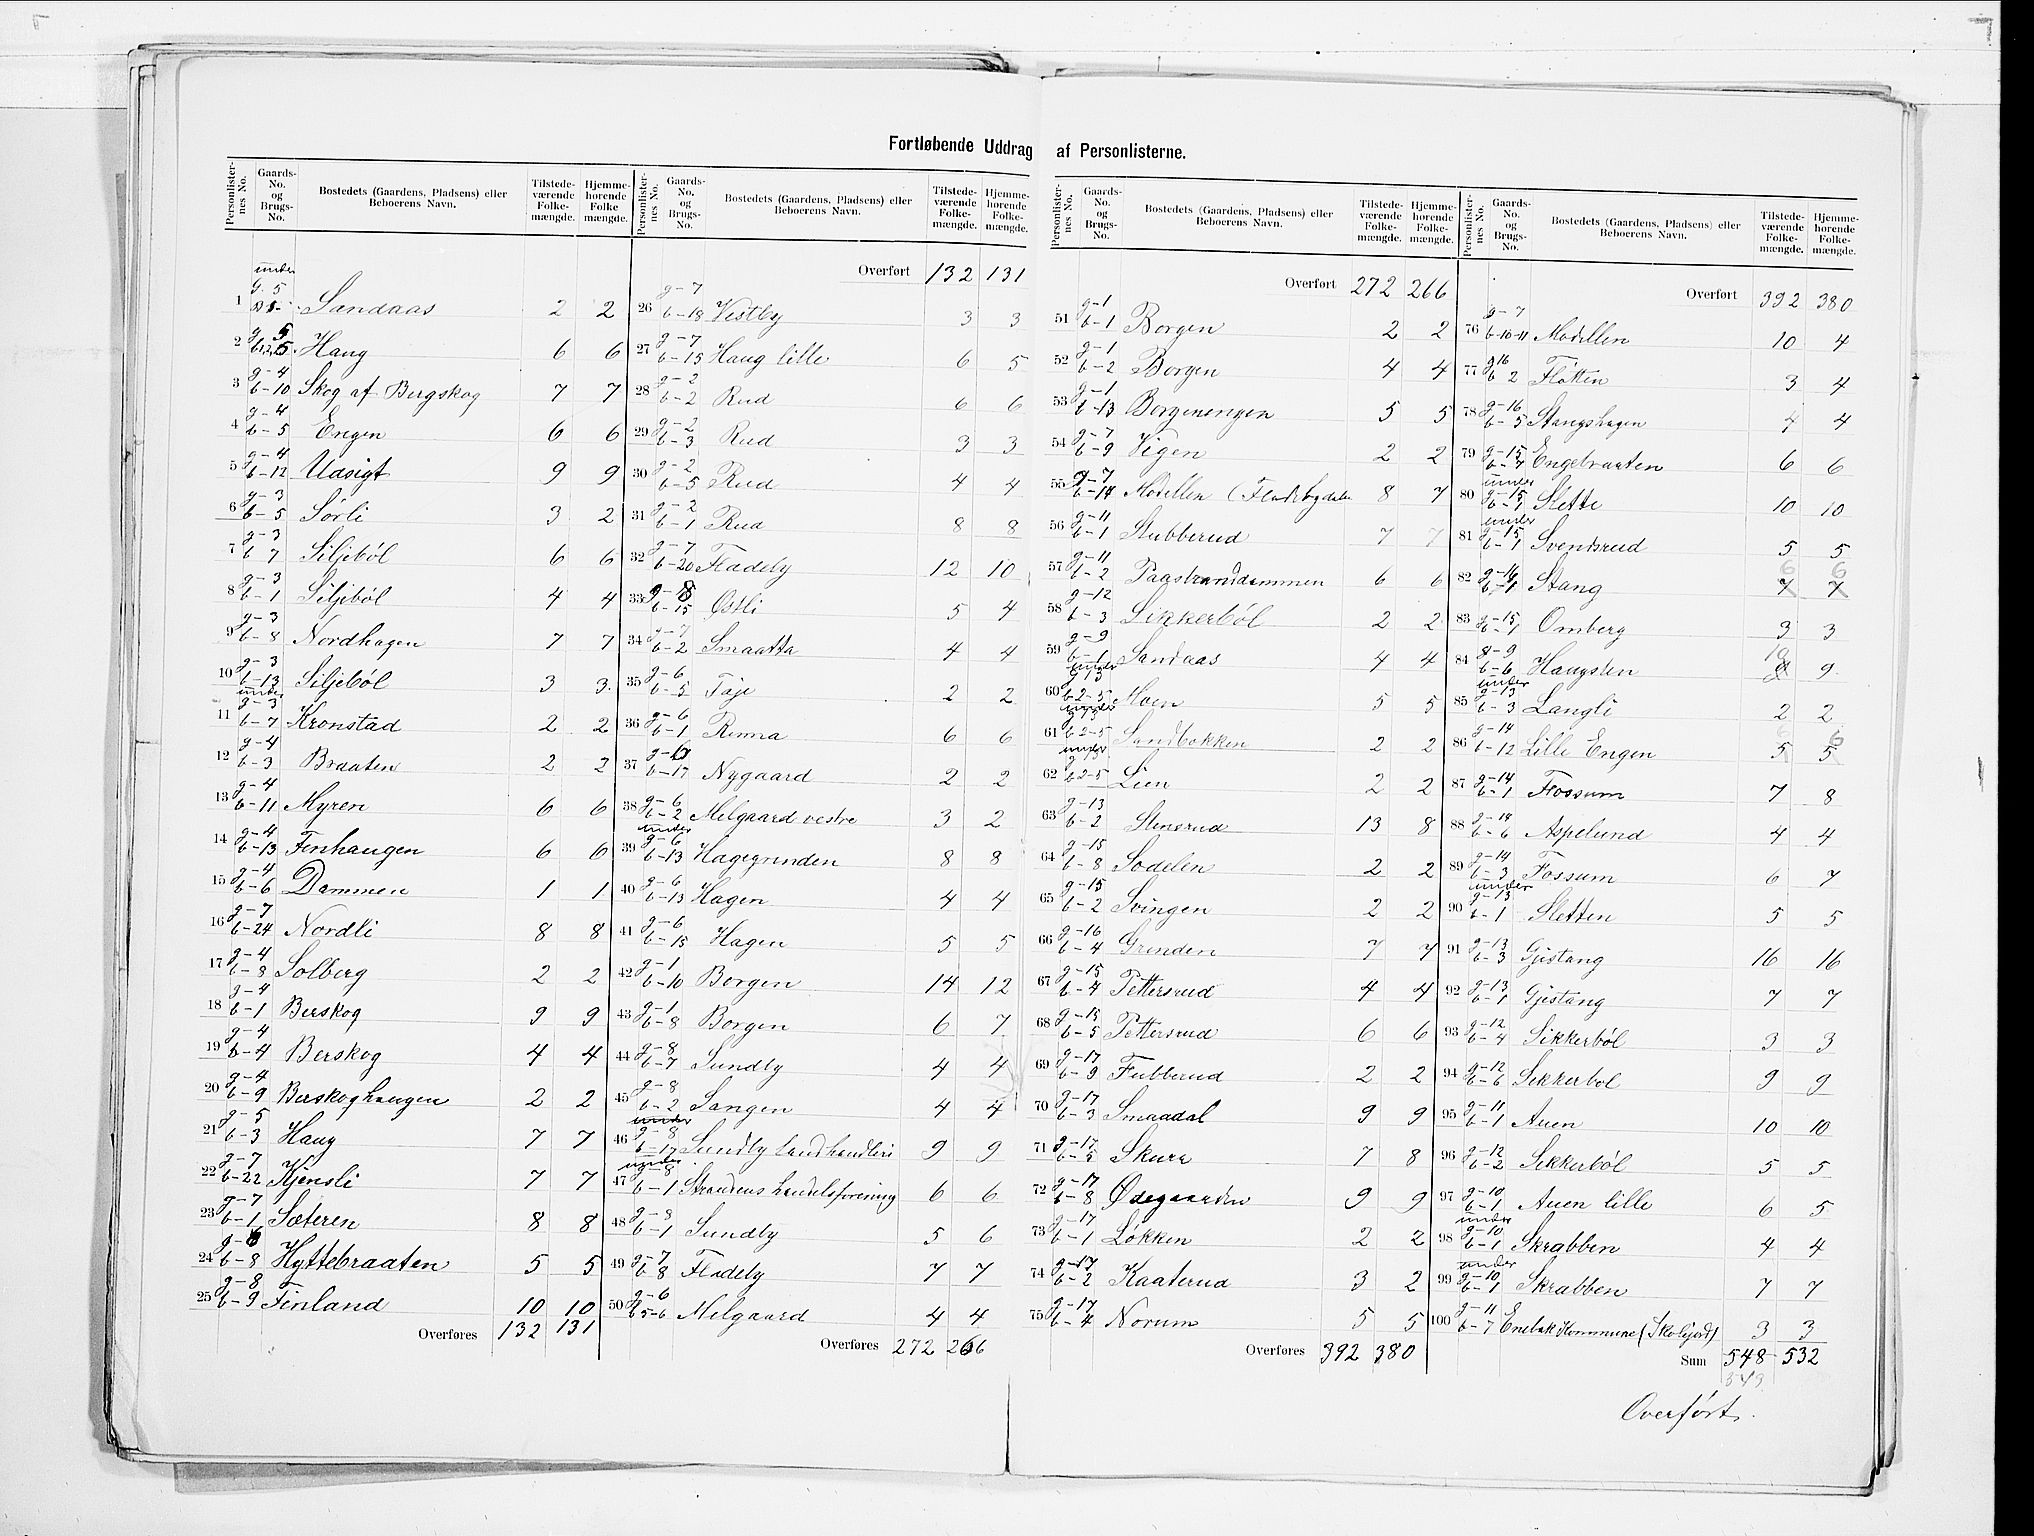 Fortløbende Uddrag af Personlisterne.
Personlisternes No. | Gaards-No. og Brugs-No. | Bostedets (Gaardens, Pladsens) eller Beboerens Navn. | Tilstedeværende Folkemængde. | Hjemmehørende Folkemængde.
1 under g. 5 Sandaas 2 2
2 g 5 Haug 6 6
3 g-4 b-10 Skog af Bergskog 7 7
4 g-4 b-5 Engen 6 6
5 g-4 b-12 Udsigt 9 9
6 g-3 b-5 Sørli 3 2
7 g-3 b 7 Siljeböl 6 6
8 g-3 b-1 Siljeböl 4 4
9 g-3 b-8 Nordhagen 7 7
10 g-3 b-13 Siljeböl 3 3
11 under g-3 b-7 Kronstad 2 2
12 g-4 b-3 Braaten 2 2
13 g-4 b-11 Myren 6 6
14 g-4 b-13 Fenhaugen 6 6
15 g-4 b-6 Dammen 1 1
16 g-7 b-24 Nordli 8 8
17 g-4 b-8 Solberg 2 2
18 g-4 b-1 Berskog 9 9
19 g-4 b-4 Berskog 4 4
20 g-4 b-9 Berskoghaugen 2 2
21 g-5 b-3 Haug 7 7
22 g-7 b-22 Kjensli 7 7
23 g-7 b-1 Sæteren 8 8
24 g-6 b-8 Hyttebraaten 5 5
25 g-8 b-9 Finland 10 10
Overføres 132 131
Personlisternes No. | Gaards-No. og Brugs-No. | Bostedets (Gaardens, Pladsens) eller Beboerens Navn. | Tilstedeværende Folkemængde. | Hjemmehørende Folkemængde.
Overført 132 131
26 g-7 b-18 Vestby 3 3
27 g-7 b-15 Haug lille 6 5
28 g-2 b-2 Rud 6 6
29 g-2 b-3 Rud 3 3
30 g-2 b-5 Rud 4 4
31 g-2 b-1 Rud 8 8
32 g-7 b-20 Fladeby 12 10
33 g-8 b-15 Østli 5 4
34 g-7 b-2 Smaatta 4 4
35 g-6 b-5 Tøje 2 2
36 g-6 b-1 Rinna 6 6
37 g-6 b-17 Nygaard 2 2
38 g-6 b-2 Melgaard vestre 3 2
39 under g-6 b-13 Hagegrinden 8 8
40 g-6 b-13 Hagen 4 4
41 g-6 b-15 Hagen 5 5
42 g-1 b-10 Borgen 14 12
43 g-1 b-8 Borgen 6 7
44 g-8 b-7 Sundby 4 4
45 g-8 b-2 Sangen 4 4
46 under g-8 b-17 Sundby Landhandleri 9 9
47 under g-8 b-1 Strandens handelsforening 6 6
48 g-8 b-1 Sundby 5 6
49 g-7 b 8 Fladeby 7 7
50 g-6 b 5-6 Melgaard 4 4
Overføres 272 266
Personlisternes No. | Gaards-No. og Brugs-No. | Bostedets (Gaardens, Pladsens) eller Beboerens Navn. | Tilstedeværende Folkemængde. | Hjemmehørende Folkemængde.
Overført 272 266
51 g-1 b-1 Borgen 2 2
52 g-1 b-2 Borgen 4 4
53 g-1 b-13 Borgenengen 5 5
54 g-7 b-9 Vigen 2 2
55 g-7 b-14 Modellen (Fladebydalen 8 7
56 g-11 b-1 Stubberud 7 7
57 g-11 b-2 Paastranddammen 6 6
58 g-12 b-3 Sikkerböl 2 2
59 g-9 b-1 Sandaas 4 4
60 under g 13 b 2-5 Moen 5 5
61 under g 13 b 2-5 Sandbakken 2 2
62 under g b 2-5 Lien 2 2
63 g-13 b-2 Stensrud 13 8
64 g-15 b-8 Sodelen 2 2
65 g-15 b-2 Svingen 2 2
66 g-16 b-4 Grinden 7 7
67 g-15 b-4 Pettersrud 4 4
68 g-15 b-5 Pettersrud 6 6
69 g-17 b-9 Fubberud 2 2
70 g-17 b-3 Smaadal 9 9
71 g-17 b-5 Skure 7 8
72 g-17 b-8 Ødegaarden 9 9
73 g-17 b-1 Løkken 2 2
74 g-17 b-2 Kaaterud 3 2
75 g-17 b-4 Norum 5 5
Overføres 392 380
Personlisternes No. | Gaards-No. og Brugs-No. | Bostedets (Gaardens, Pladsens) eller Beboerens Navn. | Tilstedeværende Folkemængde. | Hjemmehørende Folkemængde.
Overført 392 380
76 g-7 b-10-11 Modellen 10 4
77 g16 b 2 Fløtten 3 4
78 g-16 b-5 Stangshagen 4 4
79 g-15 b-7 Engebraaten 6 6
80 under g-15 b-1 Slette 10 10
81 under g-15 b-1 Svendsrud 5 5
82 g-16 b-1 Stang 6 7 6 7
83 g-15 b-1 Omberg 3 3
84 g-9 b-6 Haugsten 10 9
85 under g-13 b-3 Langli 2 2
86 g-14 b-12 Lille Engen 6 5 6 5
87 g-14 b-1 Fossum 7 8
88 g-14 b-6 Aspelund 4 4
89 g-14 b-3 Fossum 6 7
90 under g-13 b-1 Sletten 5 5
91 g-13 b-3 Gjestang 16 16
92 g-13 b-1 Gjestang 7 7
93 g-12 b-4 Sikkerböl 3 3
94 g-12 b-6 Sikkerböl 9 9
95 g-11 b-1 Auen 10 10
96 g-12 b-2 Sikkerböl 5 5
97 g-10 b-1 Auen lille 6 5
98 under g-10 b-1 Skrabben 4 4
99 under g-10 b-1 Skrabben 7 7
100 g-11 b-7 Enebak Kommune (Skolejord) 3 3
Sum 548 532
549
Overført.